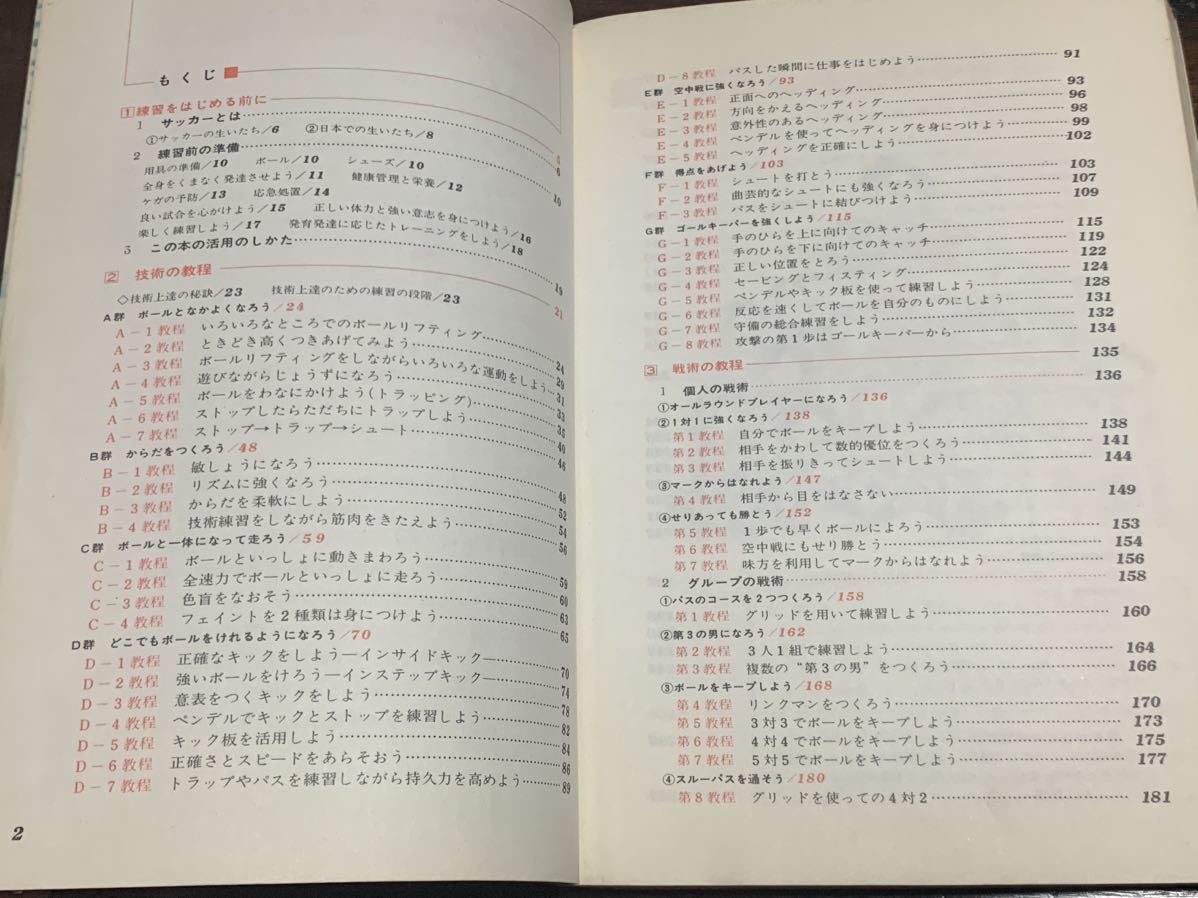 もくじ
1 練習をはじめる前に
1 サッカーとは……5
①サッカーの生いたち/6 ②日本での生いたち/8
2 練習前の準備……10
用具の準備/10 ボール/10 シューズ/10
全身をくまなく発達させよう/11 健康管理と栄養/12
ケガの予防/13 応急処置/14
良い試合を心がけよう/15 正しい体力と強い意志を身につけよう/16
楽しく練習しよう/17 発育発達に応じたトレーニングをしよう/18
3 この本の活用のしかた……19
2 技術の教程……21
◇技術上達の秘訣/23 技術上達のための練習の段階/23
A群 ボールとなかよくなろう/24
A-1教程 いろいろなところでのボールリフティング……24
A-2教程 ときどき高くつきあげてみよう……29
A-3教程 ボールリフティングをしながらいろいろな運動をしよう……31
A-4教程 遊びながらじょうずになろう……33
A-5教程 ボールをわなにかけよう(トラッピング)……35
A-6教程 ストップしたらただちにトラップしよう……40
A-7教程 ストップ→トラップ→シュート……46
B群 からだをつくろう/48
B-1教程 敏しょうになろう……48
B-2教程 リズムに強くなろう……52
B-3教程 からだを柔軟にしよう……54
B-4教程 技術練習をしながら筋肉をきたえよう……56
C群 ボールと一体になって走ろう/59
C-1教程 ボールといっしょに動きまわろう……59
C-2教程 全速力でボールといっしょに走ろう……60
C-3教程 色盲をなおそう……63
C-4教程 フェイントを2種類は身につけよう……65
D群 どこでもボールをけれるようになろう/70
D-1教程 正確なキックをしよう―インサイドキック―……70
D-2教程 強いボールをけろう―インステップキック―……74
D-3教程 意表をつくキックをしよう……78
D-4教程 ペンデルでキックとストップを練習しよう……82
D-5教程 キック板を活用しよう……84
D-6教程 正確さとスピードをあらそおう……86
D-7教程 トラップやパスを練習しながら持久力を高めよう……89
2
D-8教程 パスした瞬間に仕事をはじめよう……91
E群 空中戦に強くなろう/93
E-1教程 正面へのヘッディング……93
E-2教程 方向をかえるヘッディング……96
E-3教程 意外性のあるヘッディング……98
E-4教程 ペンデルを使ってヘッディングを身につけよう……99
E-5教程 ヘッディングを正確にしよう……102
F群 得点をあげよう/103
F-1教程 シュートを打とう……103
F-2教程 曲芸的なシュートにも強くなろう……107
F-3教程 パスをシュートに結びつけよう……109
G群 ゴールキーパーを強くしよう/115
G-1教程 手のひらを上に向けてのキャッチ……115
G-2教程 手のひらを下に向けてのキャッチ……119
G-3教程 正しい位置をとろう……122
G-4教程 セービングとフィスティング……124
G-5教程 ペンデルやキック板を使って練習しよう……128
G-6教程 反応を速くしてボールを自分のものにしよう……131
G-7教程 守備の総合練習をしよう……132
G-8教程 攻撃の第1歩はゴールキーパーから……134
3 戦術の教程……135
1 個人の戦術……136
①オールラウンドプレイヤーになろう/136
②1対1に強くなろう/138
第1教程 自分でボールをキープしよう……138
第2教程 相手をかわして数的優位をつくろう……141
第3教程 相手を振りきってシュートしよう……144
③マークからはなれよう/147
第4教程 相手から目をはなさない……149
④せりあっても勝とう/152
第5教程 1歩でも早くボールによろう……153
第6教程 空中戦にもせり勝とう……154
第7教程 味方を利用してマークからはなれよう……156
2 グループの戦術……158
①パスのコースを2つつくろう/158
第1教程 グリッドを用いて練習しよう……160
②第3の男になろう/162
第2教程 3人1組で練習しよう……164
第3教程 複数の“第3の男”をつくろう……166
③ボールをキープしよう/168
第4教程 リンクマンをつくろう……170
第5教程 3対3でボールをキープしよう……173
第6教程 4対4でボールをキープしよう……175
第7教程 5対5でボールをキープしよう……177
④スルーパスを通そう/180
第8教程 グリッドを使っての4対2……181